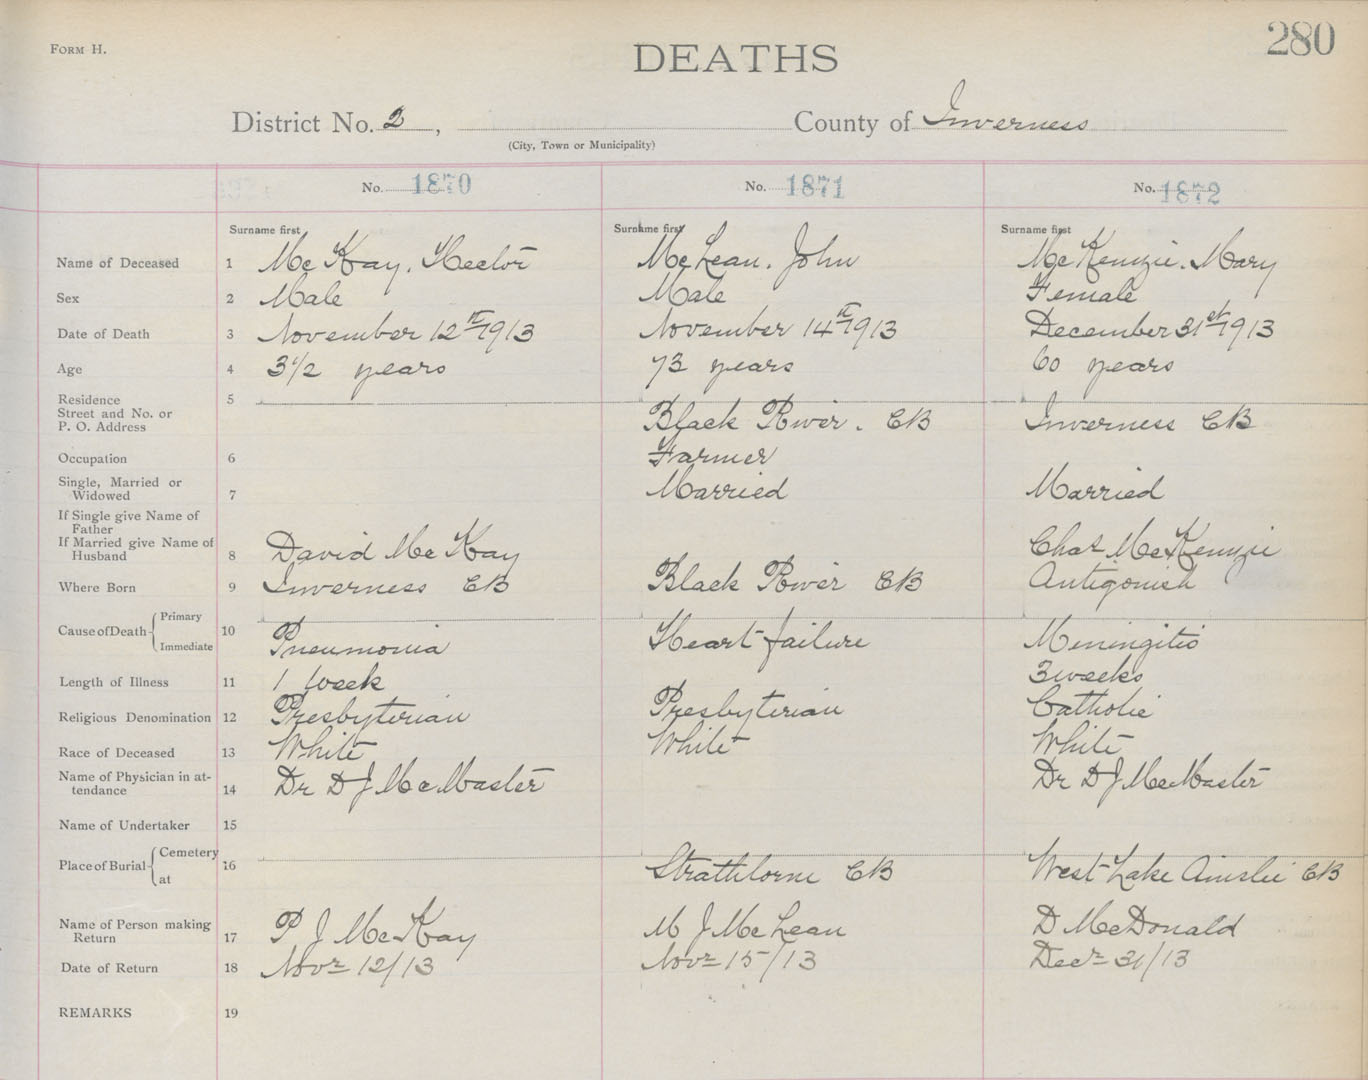 FORM H.
280
DEATHS
District No. 2, County of Inverness
(City, Town or Municipality)
No. 1870 No. 1871 No. 1872
Surname first Surname first Surname first
Name of Deceased 1 McKay, Hector McLean, John McKenzie, Mary
Sex 2 Male Male Female
Date of Death 3 November 12th 1913 November 14th 1913 December 31st 1913
Age 4 3 1/2 years 73 years 60 years
Residence 5
Street and No. or
P. O. Address Black River. CB Inverness CB
Occupation 6 Farmer
Single, Married or
Widowed 7 Married Married
If Single give Name of
Father
If Married give Name of
Husband 8 David McKay Chas McKenzie
Where Born 9 Inverness CB Black River CB Antigonish
Cause of Death Primary
Immediate 10 Pneumonia Heart failure Meningitis
Length of Illness 11 1 week 3 weeks
Religious Denomination 12 Presbyterian Presbyterian Catholic
Race of Deceased 13 White White White
Name of Physician in at-
tendance 14 Dr D J McMaster Dr D J McMaster
Name of Undertaker 15
Place of Burial Cemetery
at 16 Strathlorne CB West Lake Ainslie CB
Name of Person making
Return 17 P J McKay M J McLean D McDonald
Date of Return 18 Novr 12/13 Novr 15/13 Decr 31/13
REMARKS 19